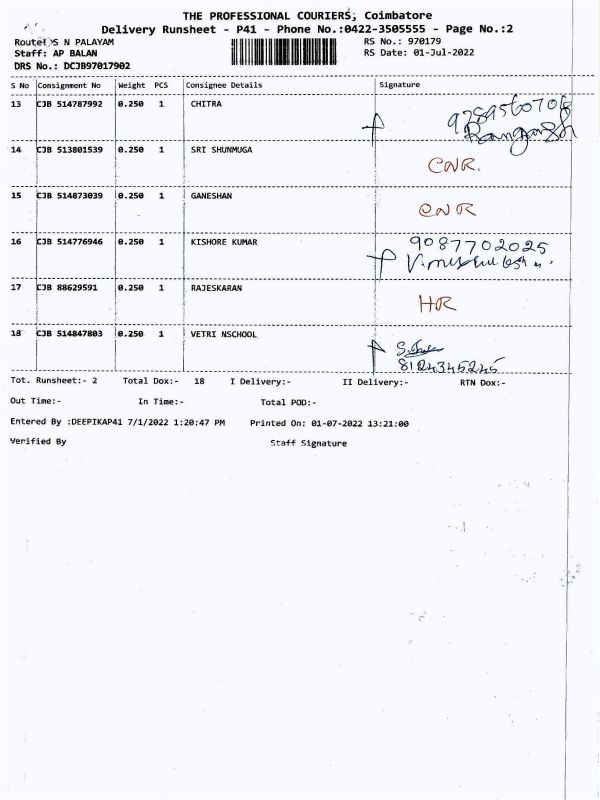 THE PROFESSIONAL COURIERS, Coimbatore
Delivery Runsheet - P41 - Phone No.:0422-3505555 - Page No.:2
Route: S N PALAYAM RS No.: 970179
Staff: AP BALAN RS Date: 01-Jul-2022
DRS No.: DCJB97017902
S No Consignment No Weight PCS Consignee Details Signature
13 CJB 514787992 0.250 1 CHITRA
14 CJB 513801539 0.250 1 SRI SHUNMUGA CNR.
15 CJB 514873039 0.250 1 GANESHAN CNR
16 CJB 514776946 0.250 1 KISHORE KUMAR 9087702025
17 CJB 88629591 0.250 1 RAJESKARAN HR
18 CJB 514847803 0.250 1 VETRI NSCHOOL
Tot. Runsheet:- 2 Total Dox:- 18 I Delivery:- II Delivery:- RTN Dox:-
Out Time:- In Time:- Total POD:-
Entered By :DEEPIKAP41 7/1/2022 1:20:47 PM Printed On: 01-07-2022 13:21:00
Verified By Staff Signature